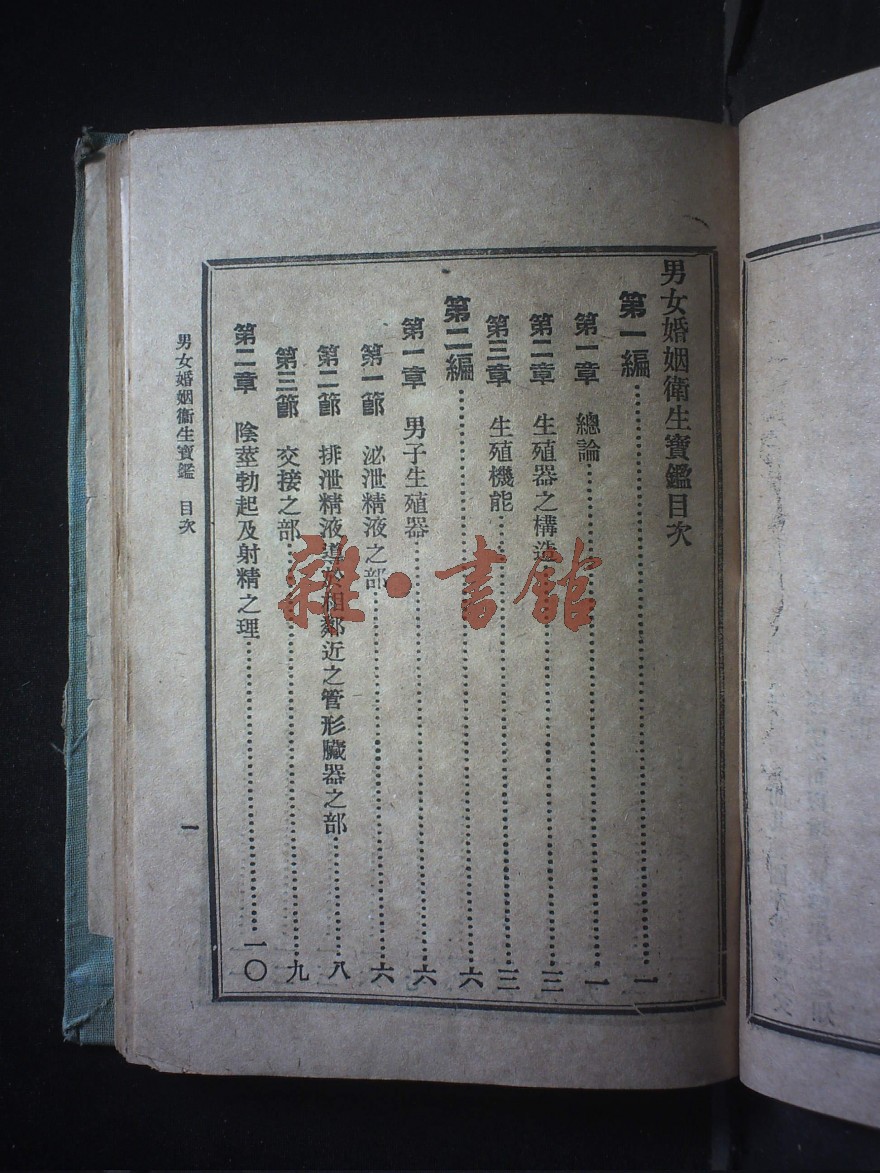 男女婚姻衛生寶鑑目次
第一編⋯⋯一
第一章 總論⋯⋯一
第二章 生殖器之構造⋯⋯三
第三章 生殖機能⋯⋯三
第二編⋯⋯六
第一章 男子生殖器⋯⋯六
第一節 泌泄精液之部⋯⋯六
第二節 排泄精液導於相鄰近之管形臟器之部⋯⋯八
第三節 交接之部⋯⋯九
第二章 陰莖勃起及射精之理⋯⋯一〇
男女婚姻衛生寶鑑 目次
一
雜·書館